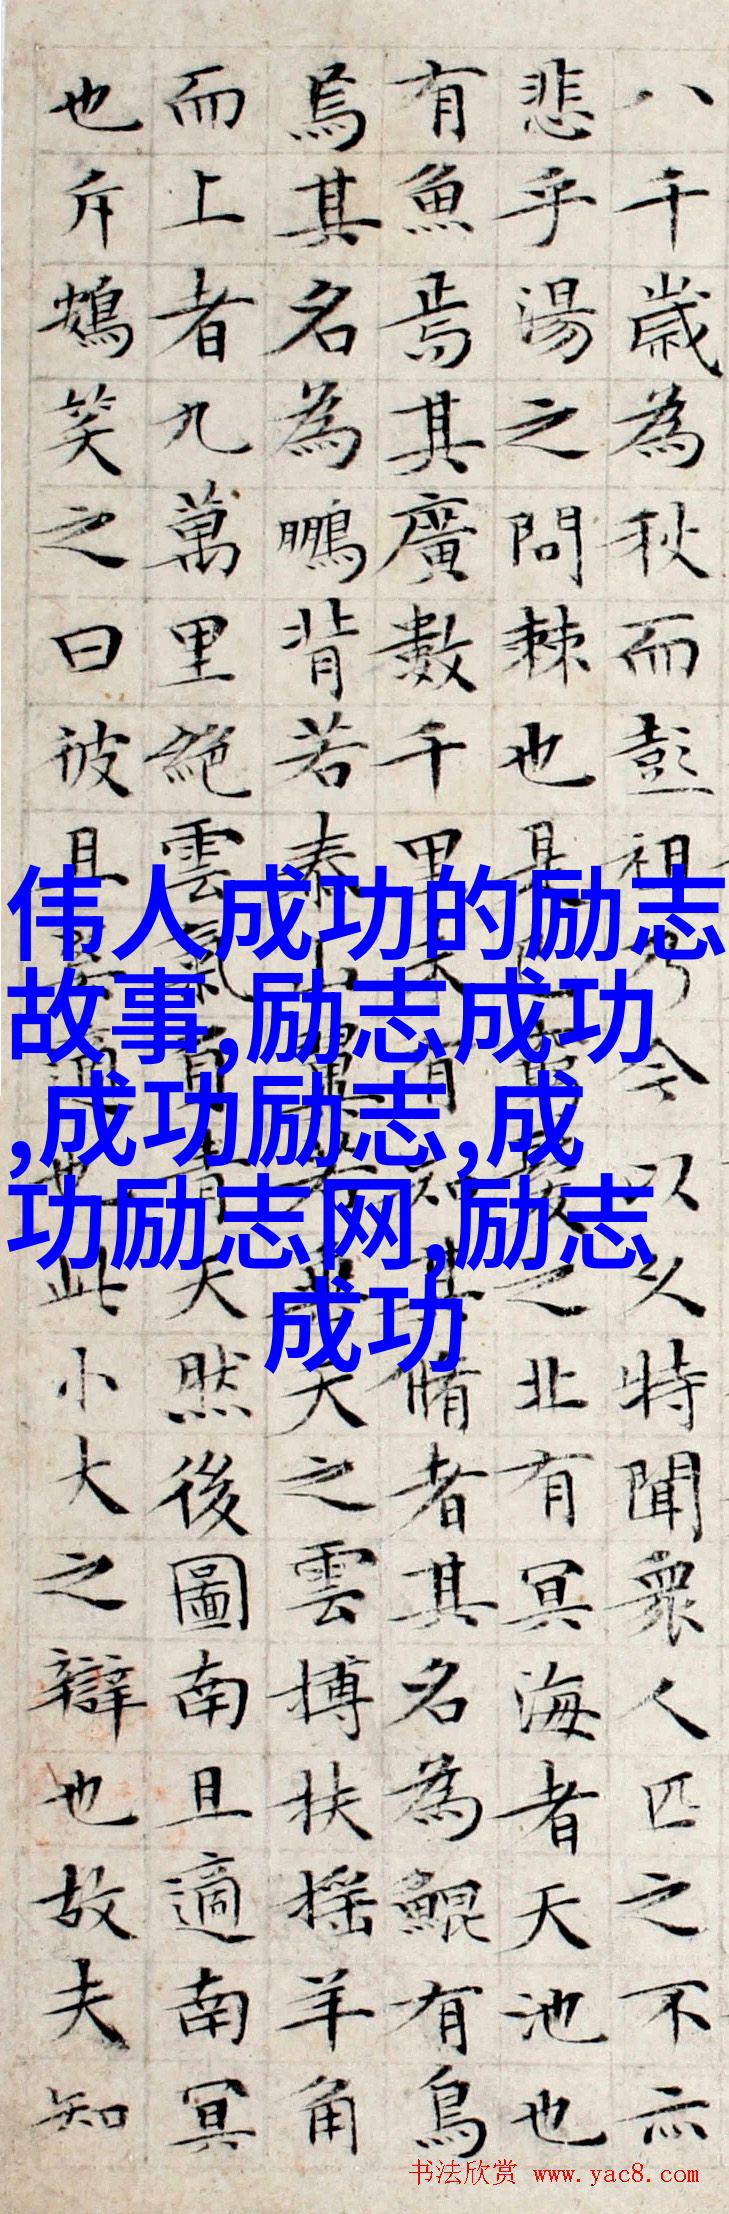 八千歲為秋而彭祖乃今以久特聞衆人匹之不亦
悲乎湯之問棘也是已窮髮之北有冥海者天池也
有魚焉其廣數千里未有知其脩者其名為鯤有鳥
焉其名為鵬背若泰山翼若垂天之雲搏扶搖羊角
而上者九萬里絕雲氣負青天然後圖南且適南冥
也斥鴳笑之曰彼且奚適也此小大之辯也故夫知
伟人成功的励志
故事,励志成功
,成功励志,成
功励志网,励志
成功
书法欣赏 www.yac8.com